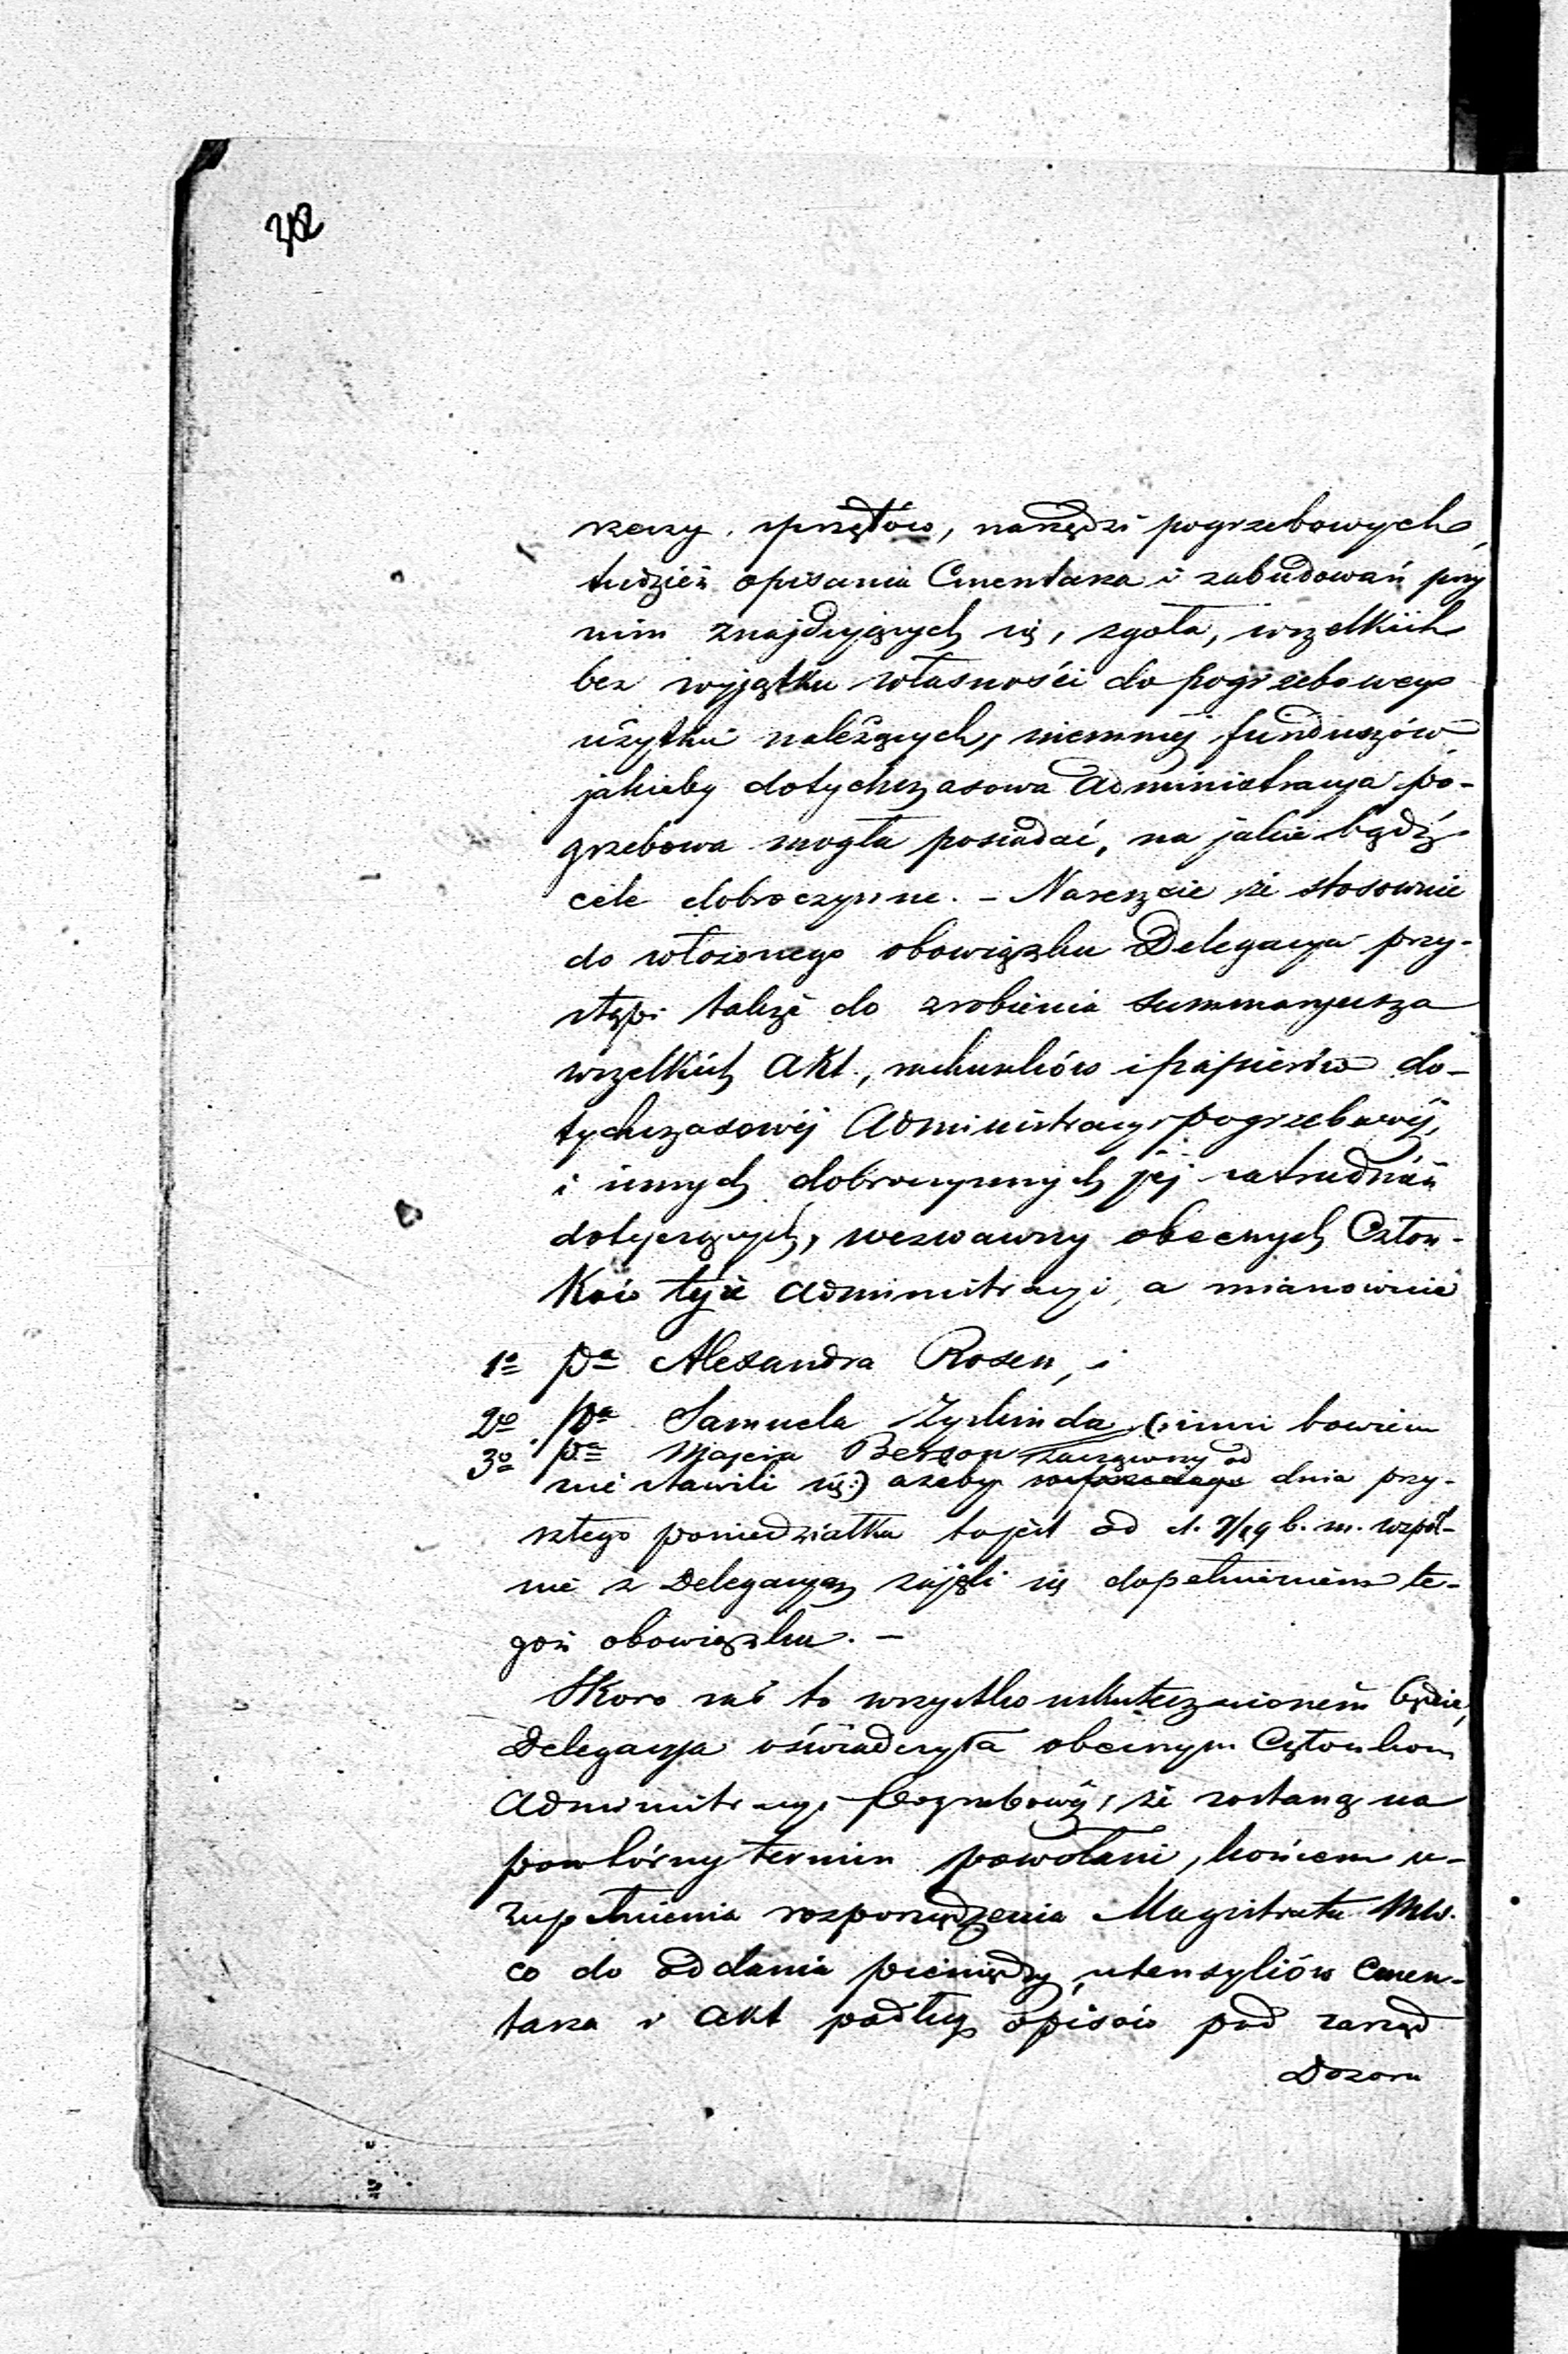 342
rzeczy, sprzętów, narzędzi pogrzebowych,
tudzież opisania Cmentarza i zabudowań przy
nim znajdujących się, zgoła, wszelkich
bez wyjątku własności do pogrzebowego
użytku należących, niemniej funduszów
jakieby dotychczasowa Administracja po-
grzebowa mogła posiadać, na jakie bądź
cele dobroczynne. – Nareszcie że stosownie
do włożonego obowiązku Delegacya przy-
stąpi także do zrobienia Summaryusza
wszelkich Akt, rachunków i papierów do-
tychczasowéj Administracyi pogrzebowéj,
i innych dobroczynnych jéj zatrudnień
dotyczących, wezwawszy obecnych Człon-
Ków téjże Administracyi, a mianowicie
1o pa Alexandra Rosen, i
2o pa Samuela Zyskinda (: inni bowiem
3o pa Majera Berson zacząwszy od
nie stawili się :) ażeby dnia przy-
szłego poniedziałku to jest od d. 7/19 b. m. wspól-
nie z Delegacyą zajęli się dopełnieniem te-
goż obowiązku. –
Skoro zaś to wszystko uskutecznionem będzie,
Delegacya oświadczyła obecnym Członkom
Administracyi Pogrzebowéj, że zostaną na
powtórny termin powołani, końcem u-
zupełnienia rozporządzenia Magistratu MW.
co do oddania pieniędzy, utensyliów Cmen-
tarza i Akt podług Opisów pod zarząd
Dozoru